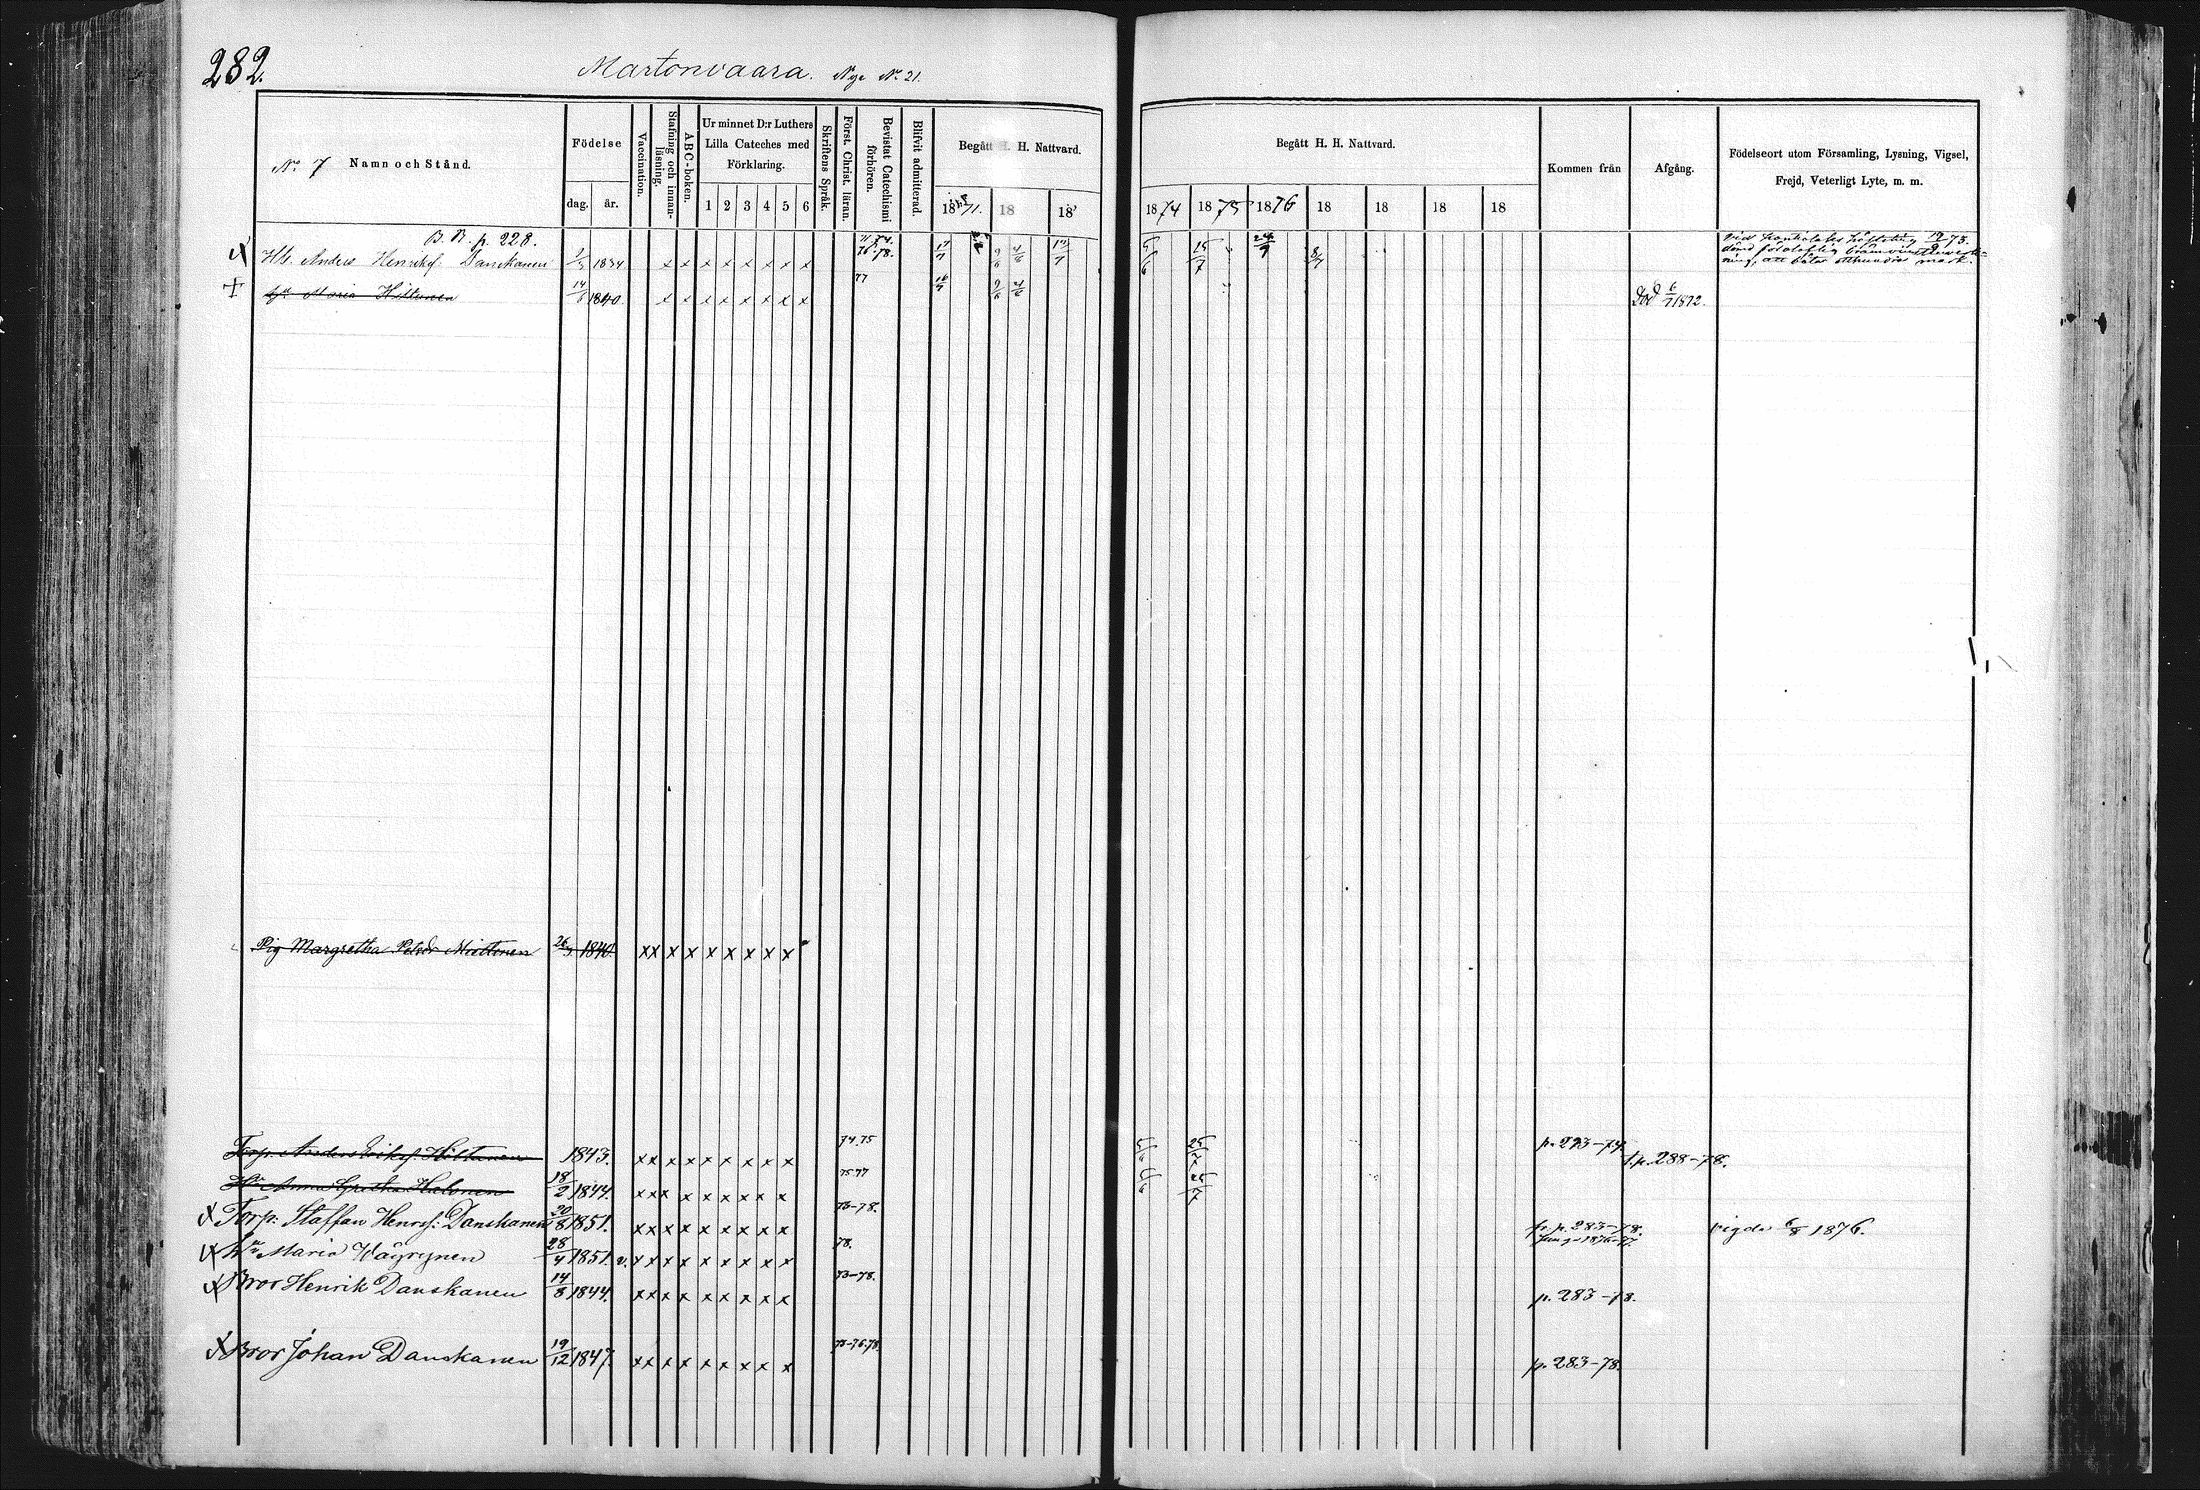 282.
Martonvaara. Nye No 21.
No 7 Namn och Stånd.
Födelse
dag. år.
Vaccination.
Stafning och innanläsning.
ABC-boken.
Ur minnet D:r Luthers
Lilla Cateches med
Förklaring.
1 2 3 4 5 6
Skriftens Språk.
Först. Christ. läran.
Bevistat Catechismi förhören.
Blifvit admitterad.
Begått H. H. Nattvard.
1871. 18 18
Begått H. H. Nattvard.
1874 1875 1876 18 18 18 18
Kommen från
Afgång.
Födelseort utom Församling, Lysning, Vigsel,
Frejd, Veterligt Lyte, m. m.
B. B. p. 228.
Anders Henriksf. Danskanen 1834 x x x x x x x x 76.78. 17/7 15/7 24/9
Hu Maria Hiltunen 14/6 1840 x x x x x x x x 77 16/7 Död 6/7 1872.
Pig Margretha Petsdr 1840. x x x x x x x x x
Torp. Anders Eriksf. Hiltunen 1843. x x x x x x x x x 74.75 p. 293-74. t.p. 288-78.
Hu Anna Gretha Halonen 18/2 1844. x x x x x x x x x 75 77
Torp: Staffan Henrsf: Danskanen 20/8 1851. x x x x x x x x x 73-78. fr. p. 283-78. vigde 6/8 1876.
hu Maria Väyrynen 28/4 1851. v. x x x x x x x x x 78.
Bror Henrik Danskanen 14/8 1844. x x x x x x x x x 73-78. p. 283-78.
Bror Johan Danskanen 19/12 1847. x x x x x x x x x 73-76.78. p. 283-78.